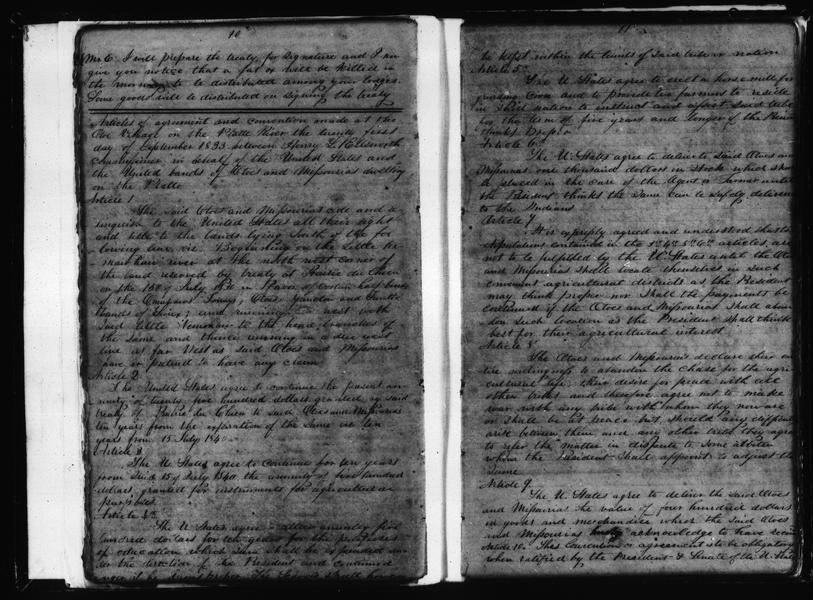 10
Mr E. I will prepare the treaty for signature and I now
give you notice that a fat ox will be killed in
the morning to be distributed among your lodges.
Some goods will be distributed on signing the treaty
Articles of agreement and convention made at the
Otoe Village on the Platte River the twenty first
day of September 1833 between Henry L. Ellsworth
Commissioner in behalf of the United States and
the United bands of Otoes and Missourias dwelling
on the Platte
Article 1
The said Otoes and Missourias cede and re-
linquish to the United States all their right
and title to the lands lying South of the fol-
lowing line viz. Beginning on the Little Ne-
mawhaw river at the north west corner of
the land reserved by treaty at Prairie du Chien
on the 15th July 1830 in favor of certain half breeds
of the Omahas, Ioways, Otoes, Yancton and Santie
bands of Sioux, and running west with
said Little Nemohaw to the head branches of
the same and thence running in a due west
line as far West as said Otoes and Missourias
have or pretend to have any claim
Article 2
The United States agree to continue the present an-
nuity of twenty five hundred dollars granted by said
treaty of Prairie du Chien to said Otoes and Missourias
ten years from the expiration of the same viz ten
years from 15 July 1840
Article 3
The U. States agree to continue for ten years
from said 15th July 1840 the annuity of five hundred
dollars granted for instruments for agricultural
purposes
Article 4th
The U States agree to allow annually five
hundred dollars for five years for the purposes
of education which sum shall be expended un-
der the direction of the President and continued
longer if he deems proper. The schools shall however
11
be kept within the limits of said tribe or nation
Article 5th
The U. States agree to erect a horse mill for
grinding corn and to provide two farmers to reside
in said nation to instruct and assist said tribe
for the term of five years and longer if the President
thinks proper
Article 6th
The U. States agree to deliver to said Otoes and
Missourias one thousand dollars in Stock which shall
be placed in the care of the Agent or Farmer until
the President thinks the same can be safely delivered
to the Indians
Article 7
It is expressly agreed and understood that the
stipulations contained in the 3d 4th 5th & 6th articles are
not to be fulfilled by the U. States until the Otoes
and Missourias shall locate themselves in such
convenient agricultural districts as the President
may think proper nor shall the payments be
continued if the Otoes and Missourias shall aban-
don such location as the President shall think
best for their agricultural interest
Article 8
The Otoes and Missourias declare their en-
tire willingness to abandon the chase for the agri-
cultural life: their desire for peace with all
other tribes and therefore agree not to make
war with any tribe with whom they now are
or shall be at peace but should any difficulty
arise between them and any other tribe they agree
to refer the matter in dispute to some arbiter
whom the President shall appoint to adjust the
same
Article 9.
The U. States agree to deliver the said Otoes
and Missourias the value of four hundred dollars
in goods and merchandise which the said Otoes
and Missourias hereby acknowledge to have received
Article 10. This Convention or agreement is to be obligatory
when ratified by the President & Senate of the U. States